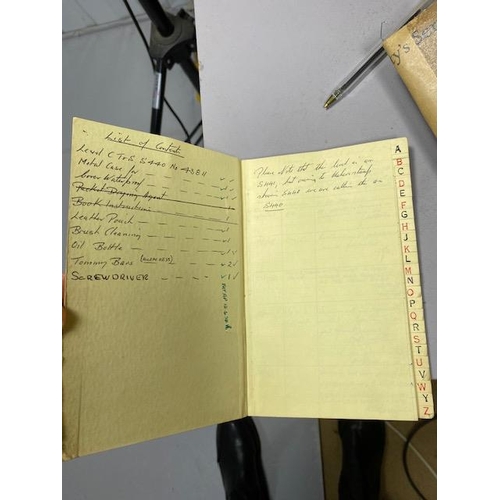 List of Contents
Level C T & S S440 No 4381
Metal Case for
Cover Waterproof
Pocket Drying Agent
Book Instructions
Leather Pouch
Brush Cleaning
Oil Bottle
Tommy Bars 2
SCREWDRIVER 1
Please note that this level is an
S441, but owing to
we are calling it an
S440
A
B
C
D
E
F
G
H
J
K
L
M
N
O
P
Q
R
S
T
U
V
W
Y
Z
y's S